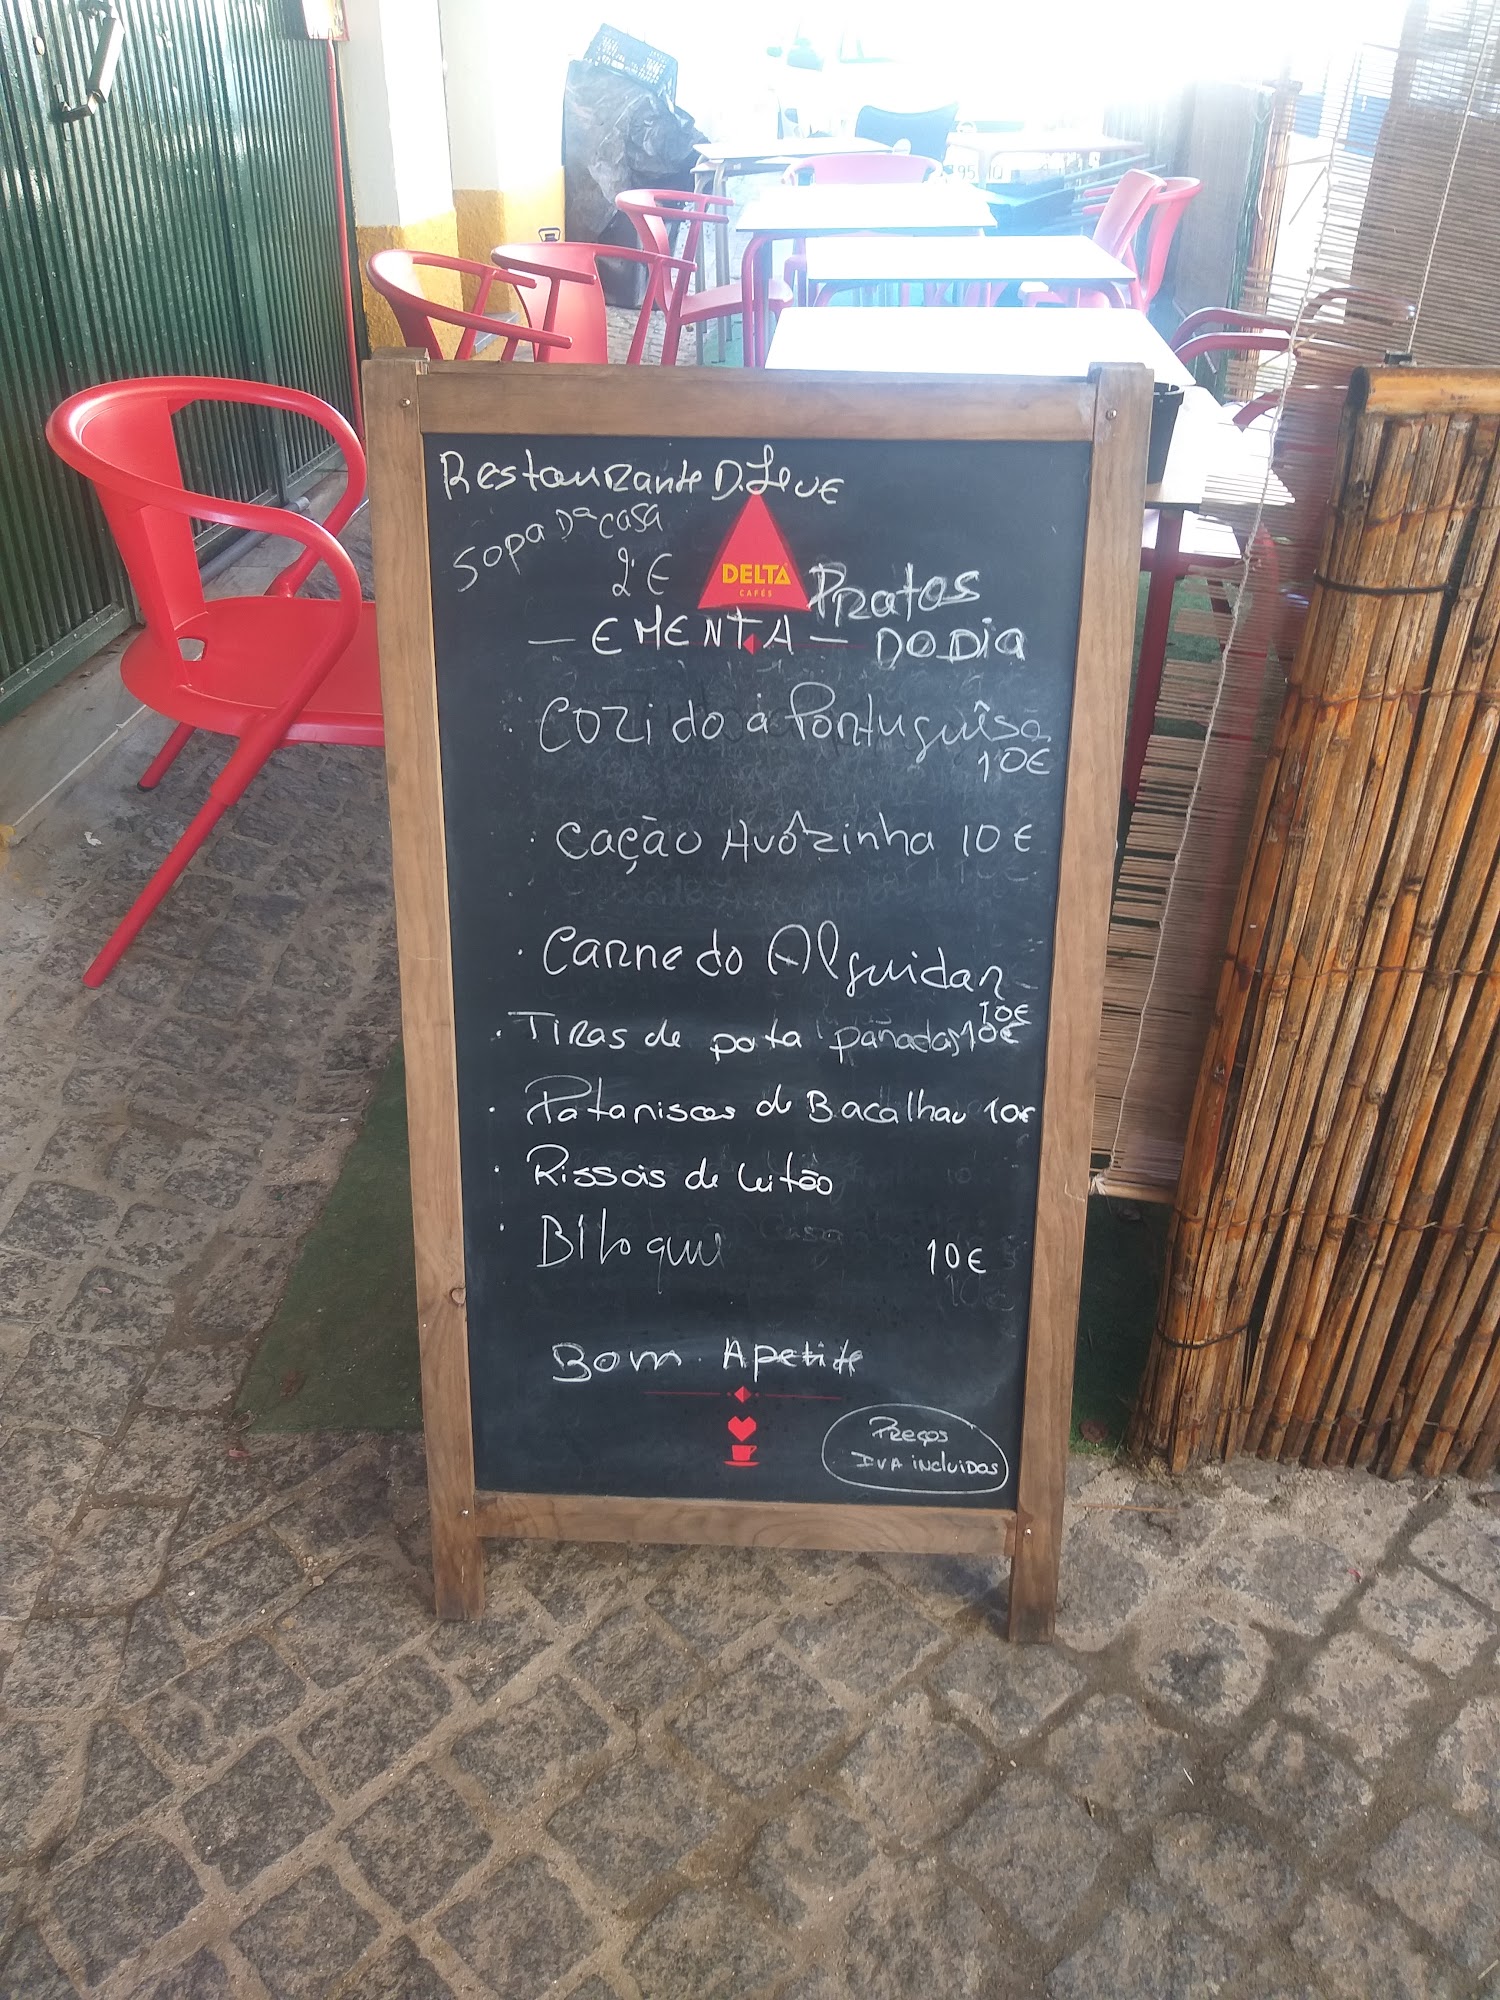 Restaurante D. Leve
Sopa Da casa
2 €
DELTA
CAFÉS
Pratos
— EMENTA — DO DIA
· Cozido á Portuguêsa
10€
· Cação Avózinha 10€
· Carne do Alguidar
10€
· Tiras de pota panadas 10€
· Pataniscas de Bacalhau 10€
· Rissois de Leitão
· Bitoque 10€
Bom Apetite
Preços
IVA incluidos